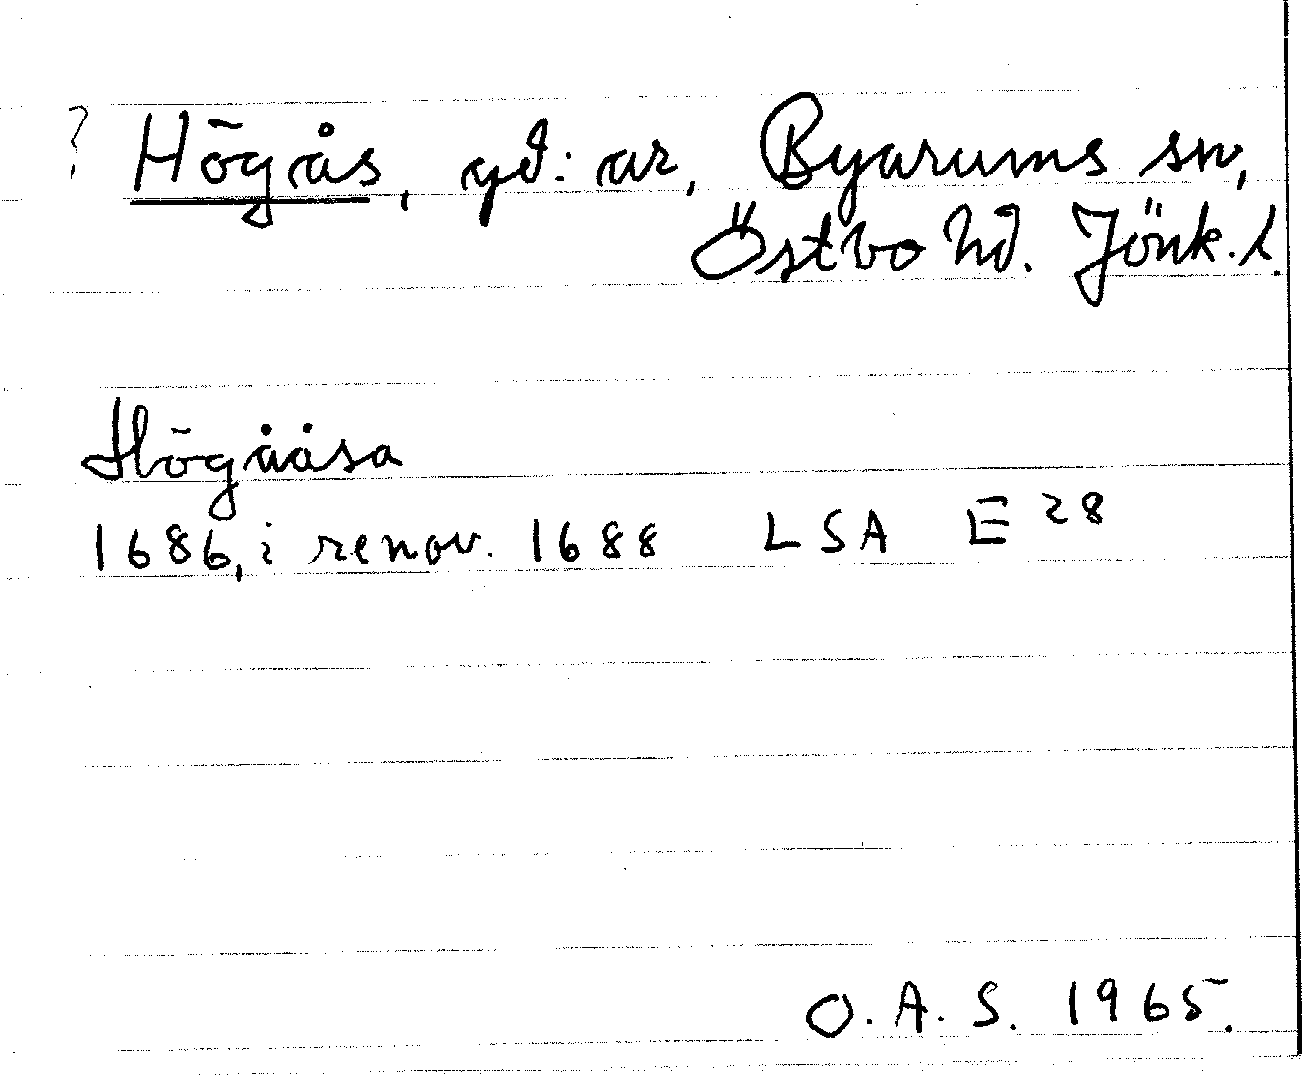 ? Högås, gd: ar, Byarums sn,
Östbo hd. Jönk. l.
Högååsa
1686, i renov. 1688 LSA E 28
O. A. S. 1965.